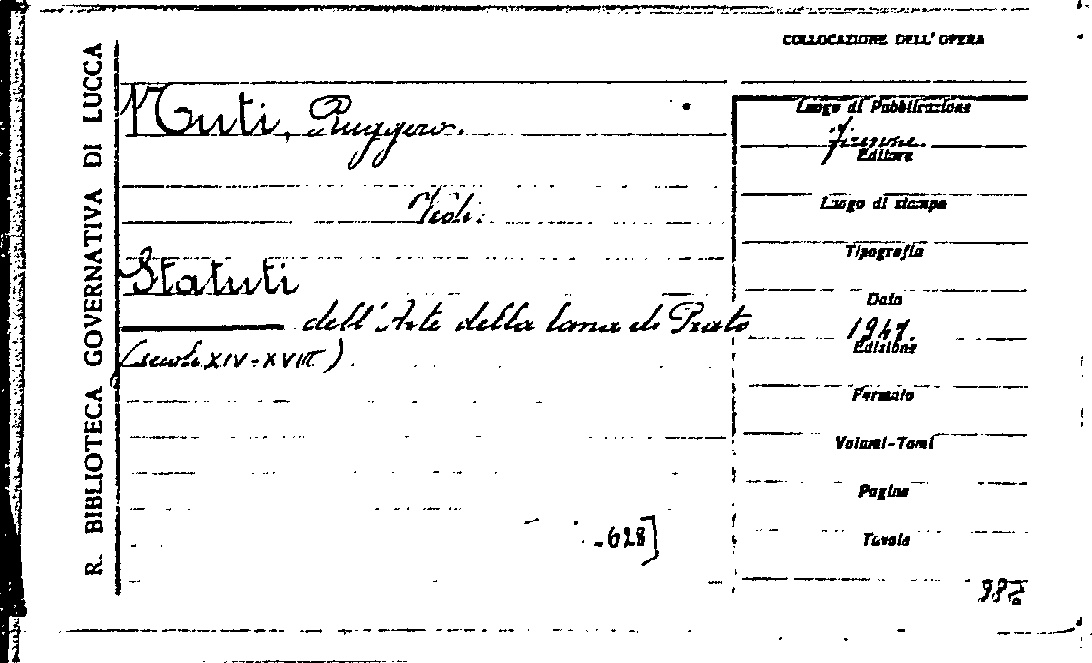 R. BIBLIOTECA GOVERNATIVA DI LUCCA
COLLOCAZIONE DELL'OPERA
Nuti, Ruggero.
Vedi.
Statuti
dell'Arte della lana di Prato
(secoli XIV-XVIII).
-628]
Luogo di Pubblicazione
Firenze.
Editore
Luogo di stampa
Tipografia
Data
1947.
Edizione
Formato
Volumi-Tomi
Pagine
Tavole